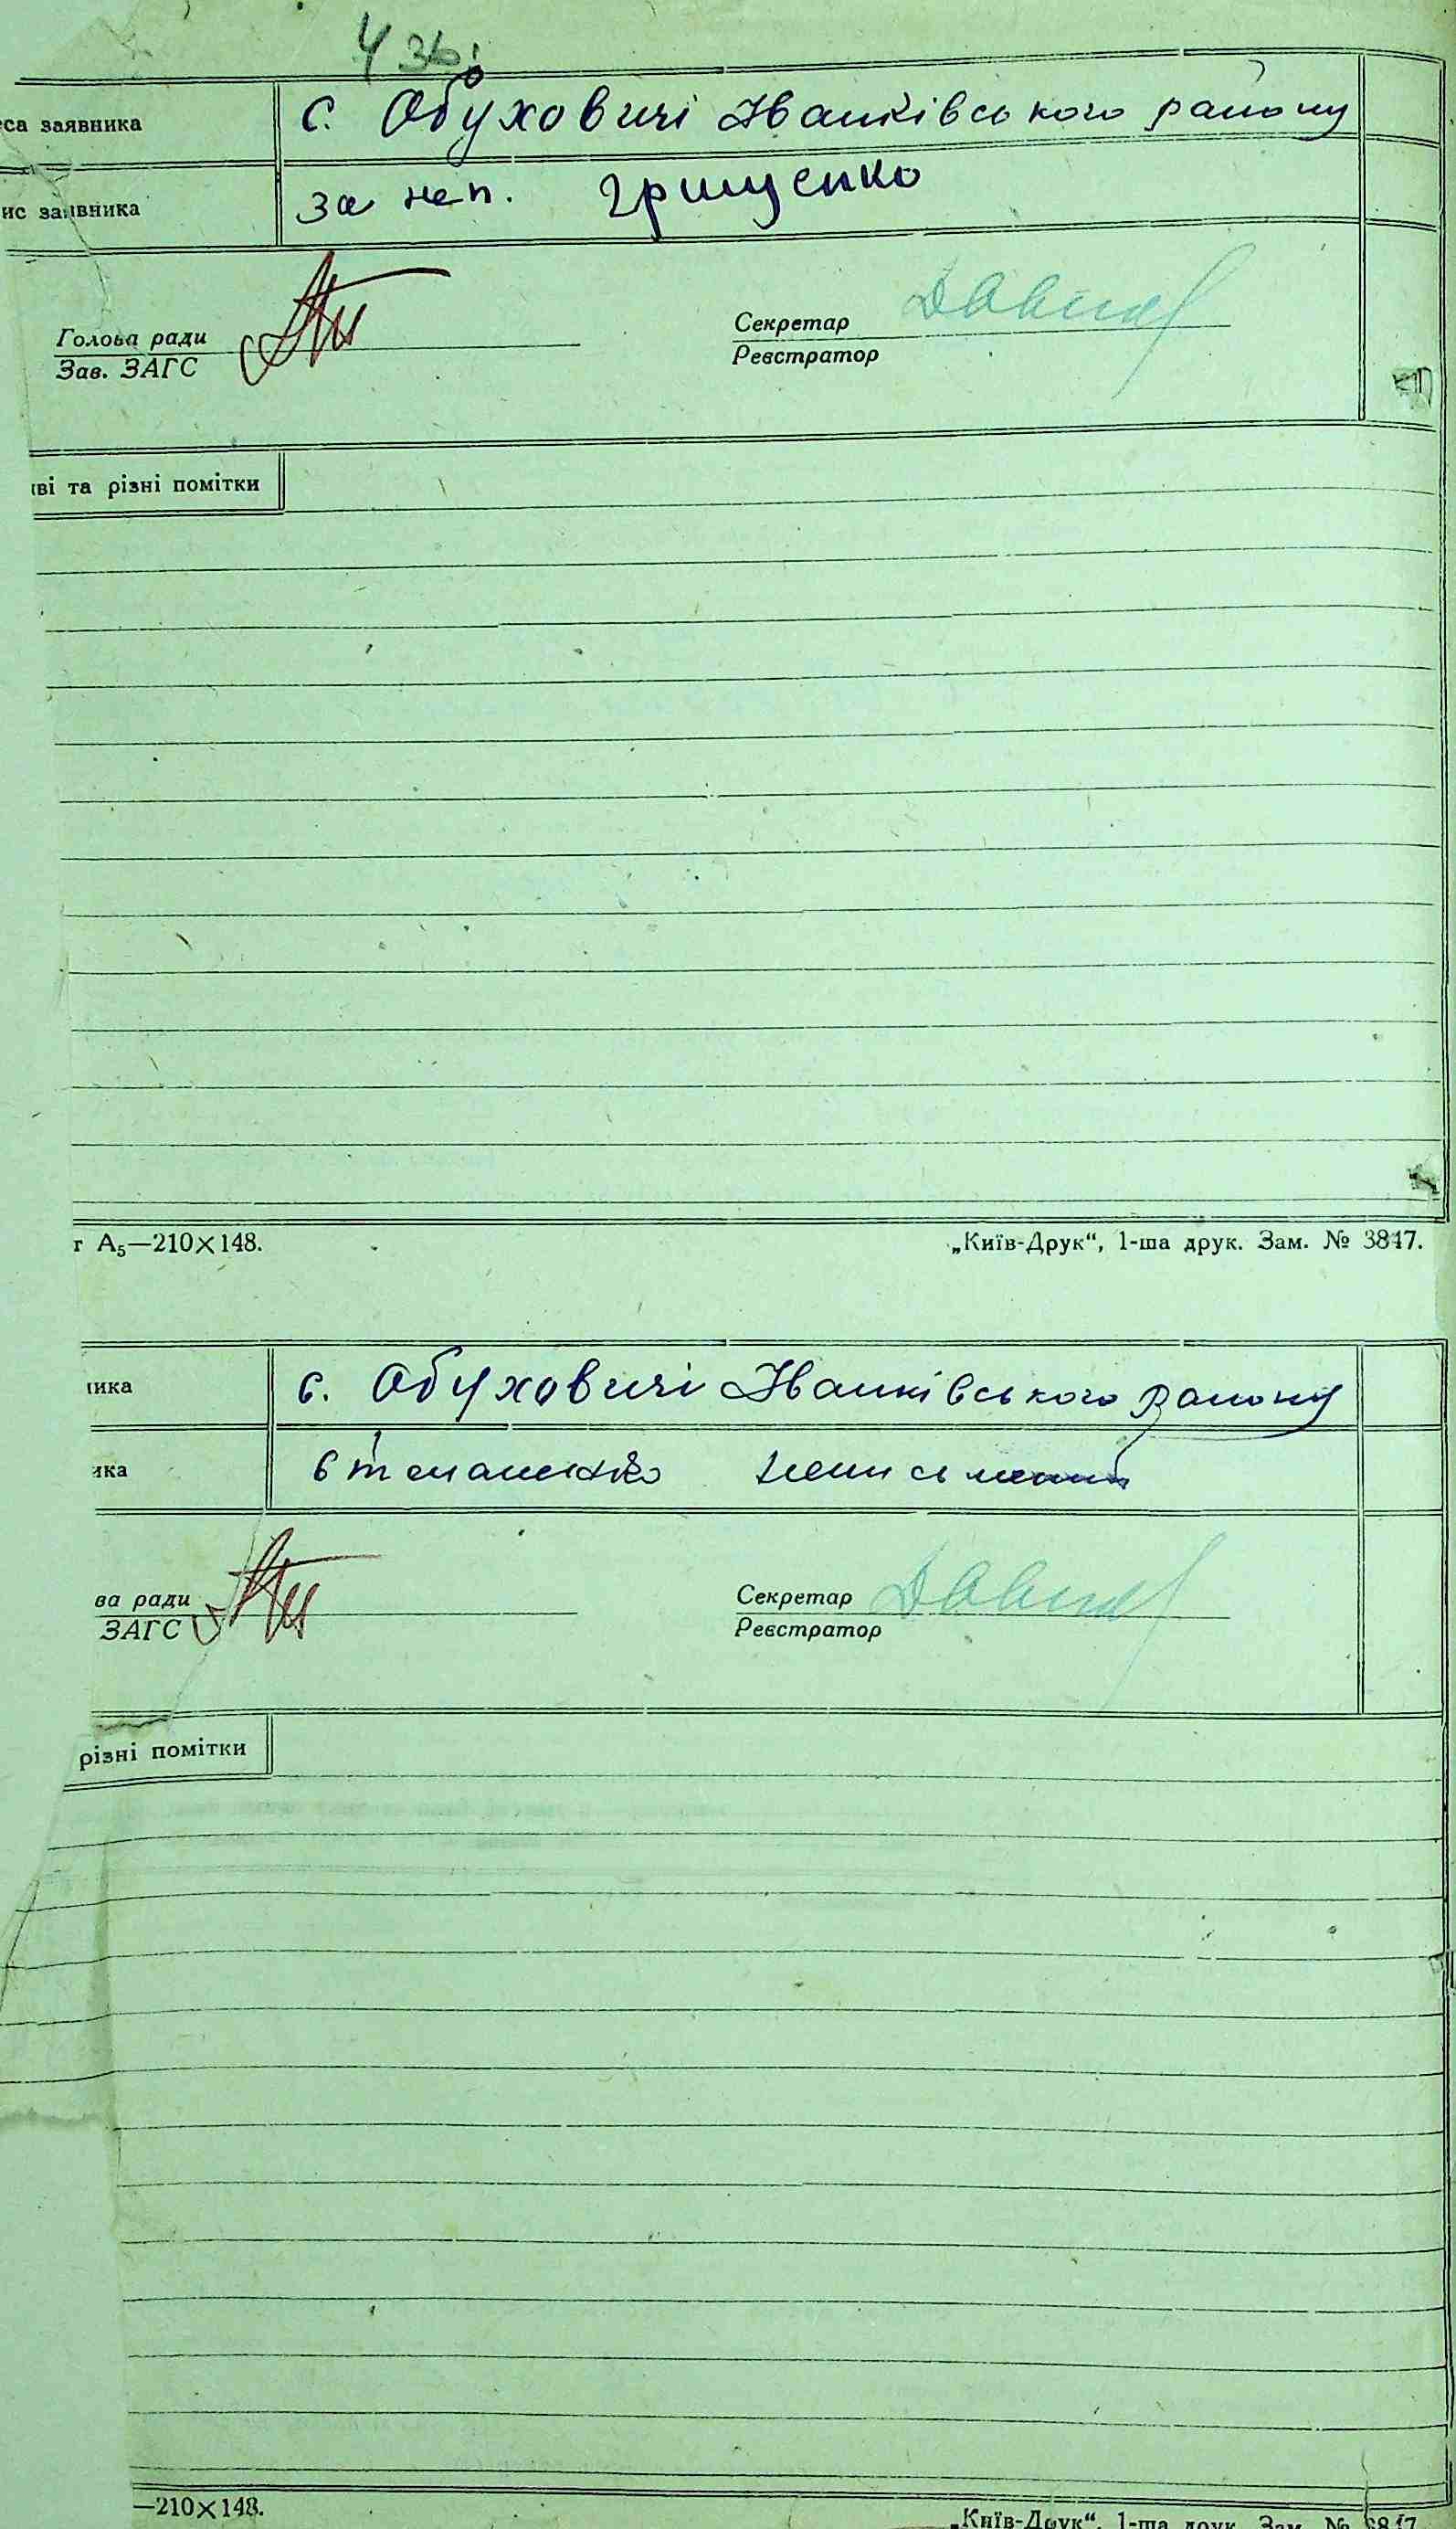 436
еса заявника с. Обуховичі Іванківського району
ис заявника за неп. Грищенко
Голова ради Секретар
Зав. ЗАГС Реєстратор
іві та різні помітки
т А₅—210×148. „Київ-Друк“, 1-ша друк. Зам. № 3847.
ника с. Обуховичі Іванківського району
ика
ва ради Секретар
ЗАГС Реєстратор
різні помітки
—210×148. „Київ-Друк“, 1-ша друк. Зам. № 3847.